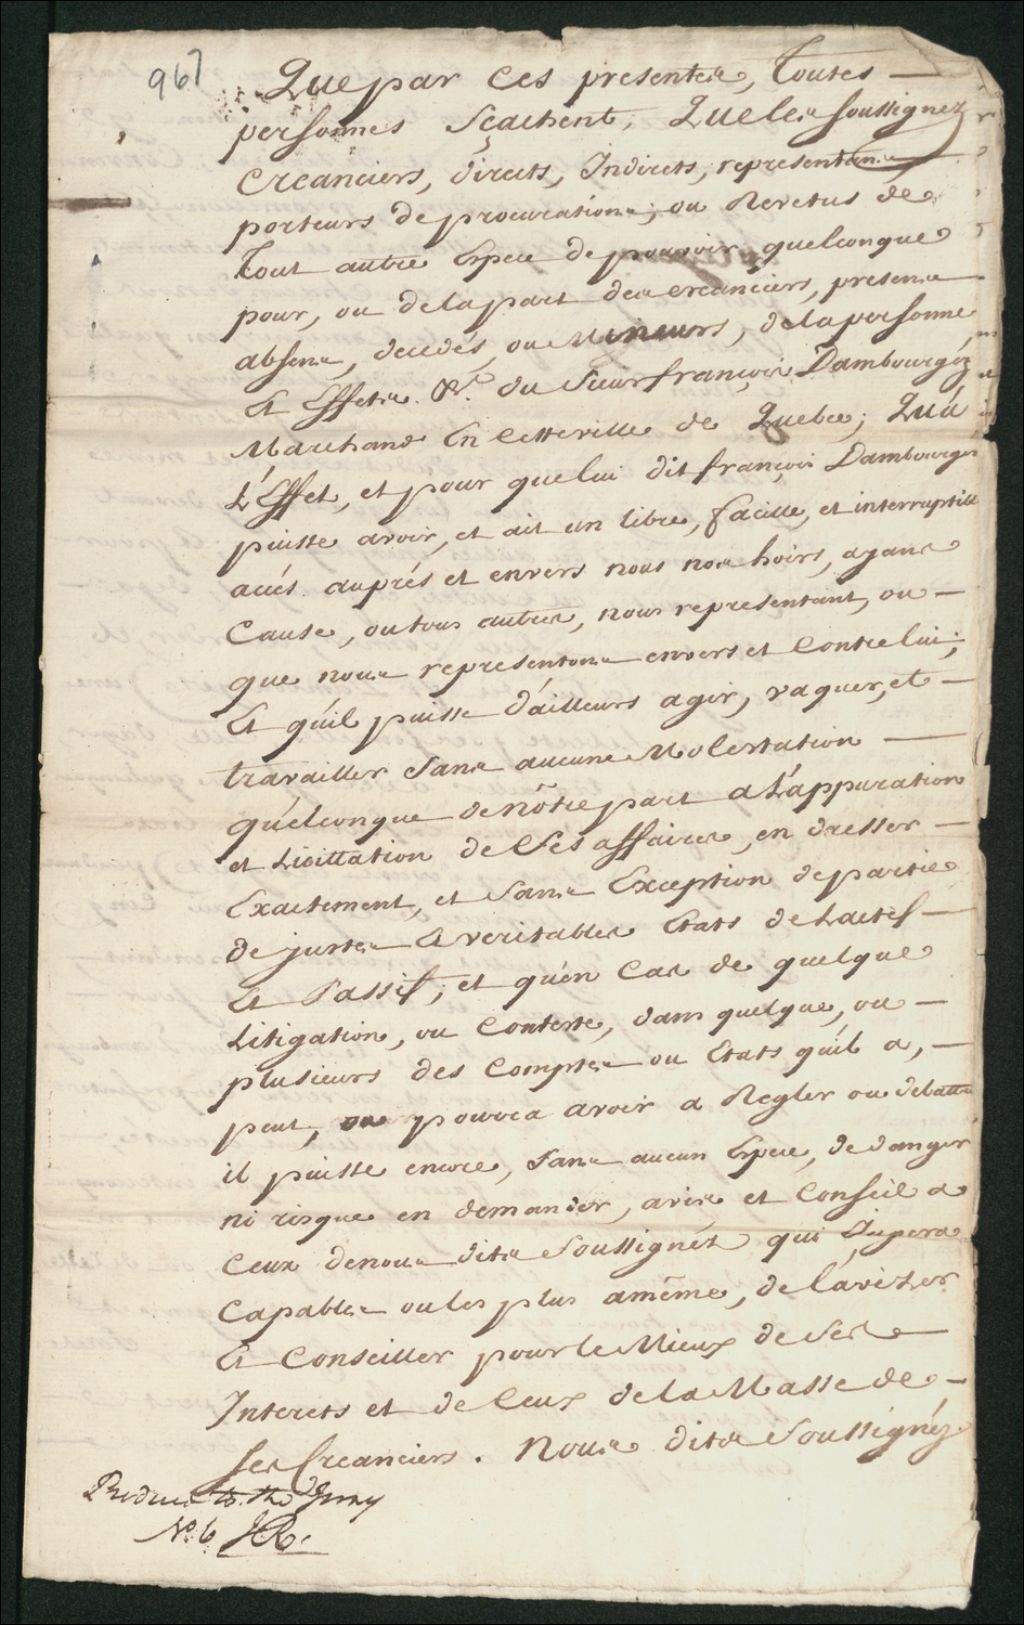 967
Que par ces presentes, Toutes —
personnes Sçachent, Que les soussignez
Creanciers, directs, Indirets, representans,
porteurs de procurations, ou Revetus de
Tout autre Espece de pouvoir quelconque
pour, ou de la part des creanciers, presens
absens, decedés, ou Mineurs, de la personne
Et Effets &c. du Sieur françois Dambourgéz
Marchand En cette ville de Quebec; Qu'a
L'Effet, et pour que lui dit françois Dambourges
puisse avoir, et ait un libre, facille, et interruptill
accés auprés et envers nous nos hoirs, ayans
Cause, ou tous autres, nous representant, ou —
que nous representons envers et Contre lui;
Et qu'il puisse d'ailleurs agir, vaquer, et —
travailler Sans aucune Molestation —
quélconque de nôtre part a L'appuration
et Licittation de Ses affaires, en dresser —
Exactement, et Sans Exception de partie
de justes & veritables Etats de Lactif —
Et Passif; et qu'en Cas de quelque
Litigation, ou Conteste, dans quelque, ou —
plusieurs des Comptes ou Etats quil a, —
peut, ou pourra avoir a Regler ou debattre
il puisse encore, sans aucun Espece, de danger
ni risque en demander, avis et Conseil a
Ceux de nous dits Soussignéz qui
Capables ou les plus amême, de l'avizer
Et Conseiller pour le Mieux de Ses —
Interets et de Ceux de la Masse de —
ses Creanciers. Nous dits Soussignéz
Produced to the Jury
No. 6 JR.